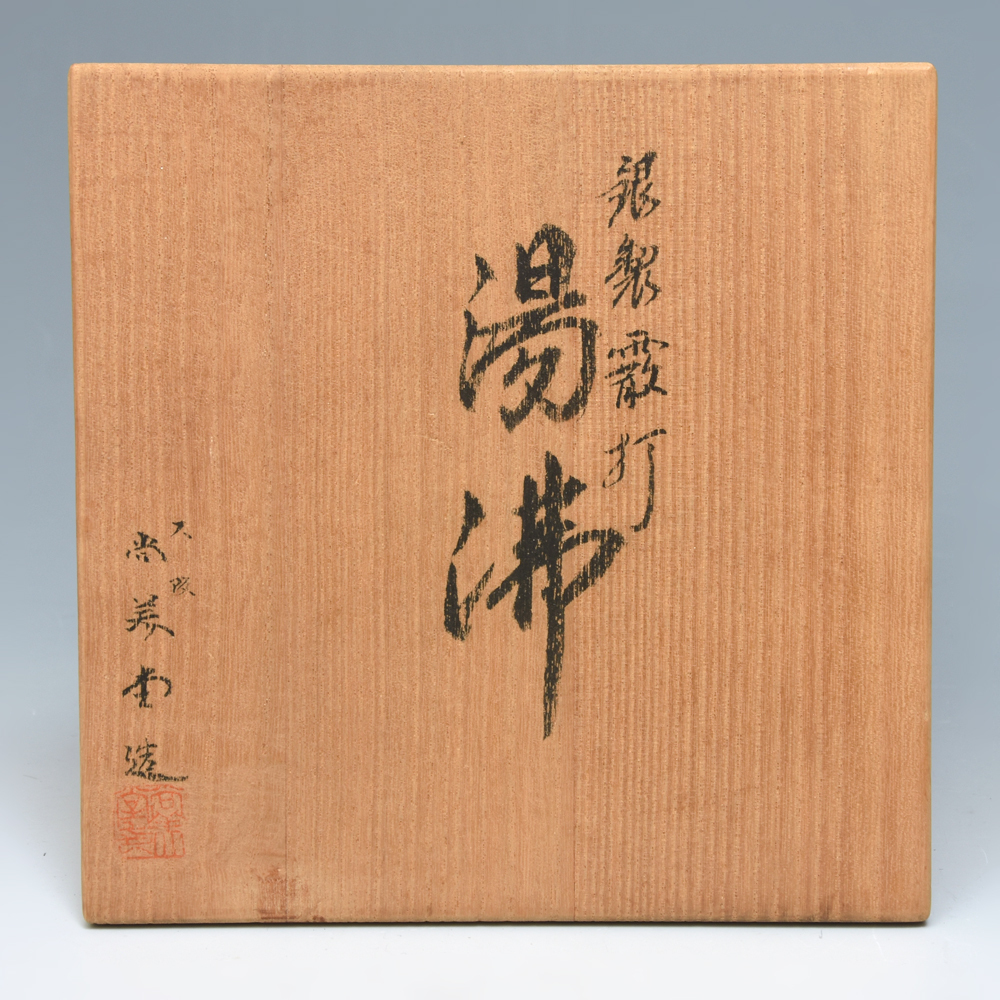 銀製霰打
湯沸
大阪
尚美堂造